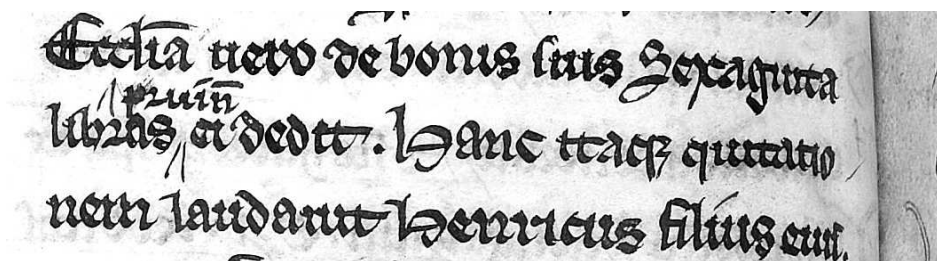 Ecclīa uero de bonis suis Sexaginta
pruuiñ
libras ei dedit. Hanc itaqꝫ quitatio
nem laudauit Henricus filius eius.